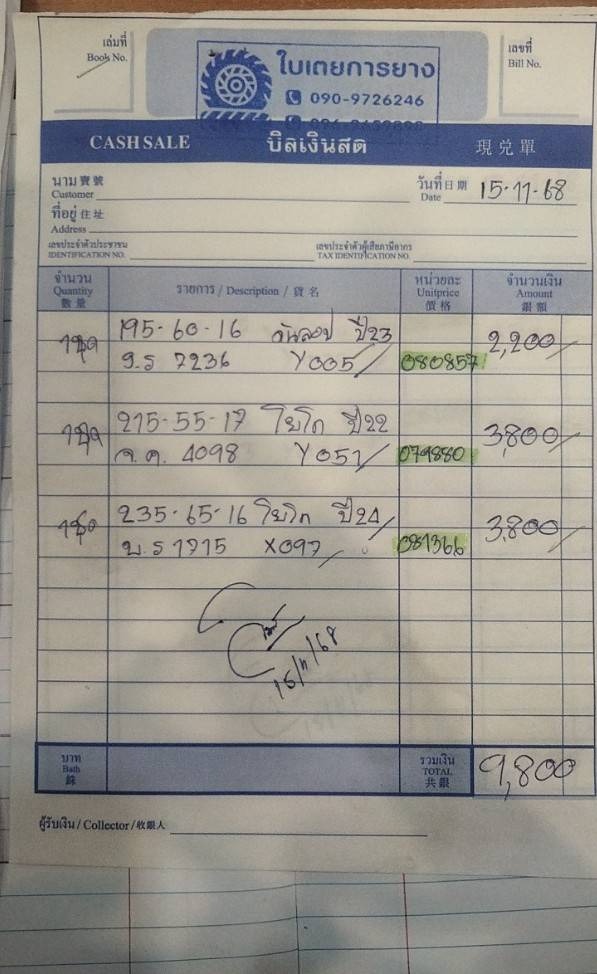 เล่มที่
Book No.
ใบเตยการยาง
090-9726246
เลขที่
Bill No.
CASH SALE บิลเงินสด 現兌單
นาม寶號
Customer
วันที่日期 15-11-68
Date
ที่อยู่住址
Address
เลขประจำตัวประชาชน
IDENTIFICATION NO.
เลขประจำตัวผู้เสียภาษีอากร
TAX IDENTIFICATION NO.
จำนวน
Quantity
數量
รายการ / Description / 貨名
หน่วยละ
Unitprice
價格
จำนวนเงิน
Amount
銀額
195-60-16 ดันลอป ปี23 2,200/
7236 Y005/ 080857
215-55-17 โยโก ปี22 3,800/
4098 Y051/ 079880
235-65-16 โยโก ปี24/ 3,800/
1715 X097/ 081366
15/11/68
บาท
Bath
銖
รวมเงิน
TOTAL
共銀
9,800
ผู้รับเงิน / Collector / 收銀人